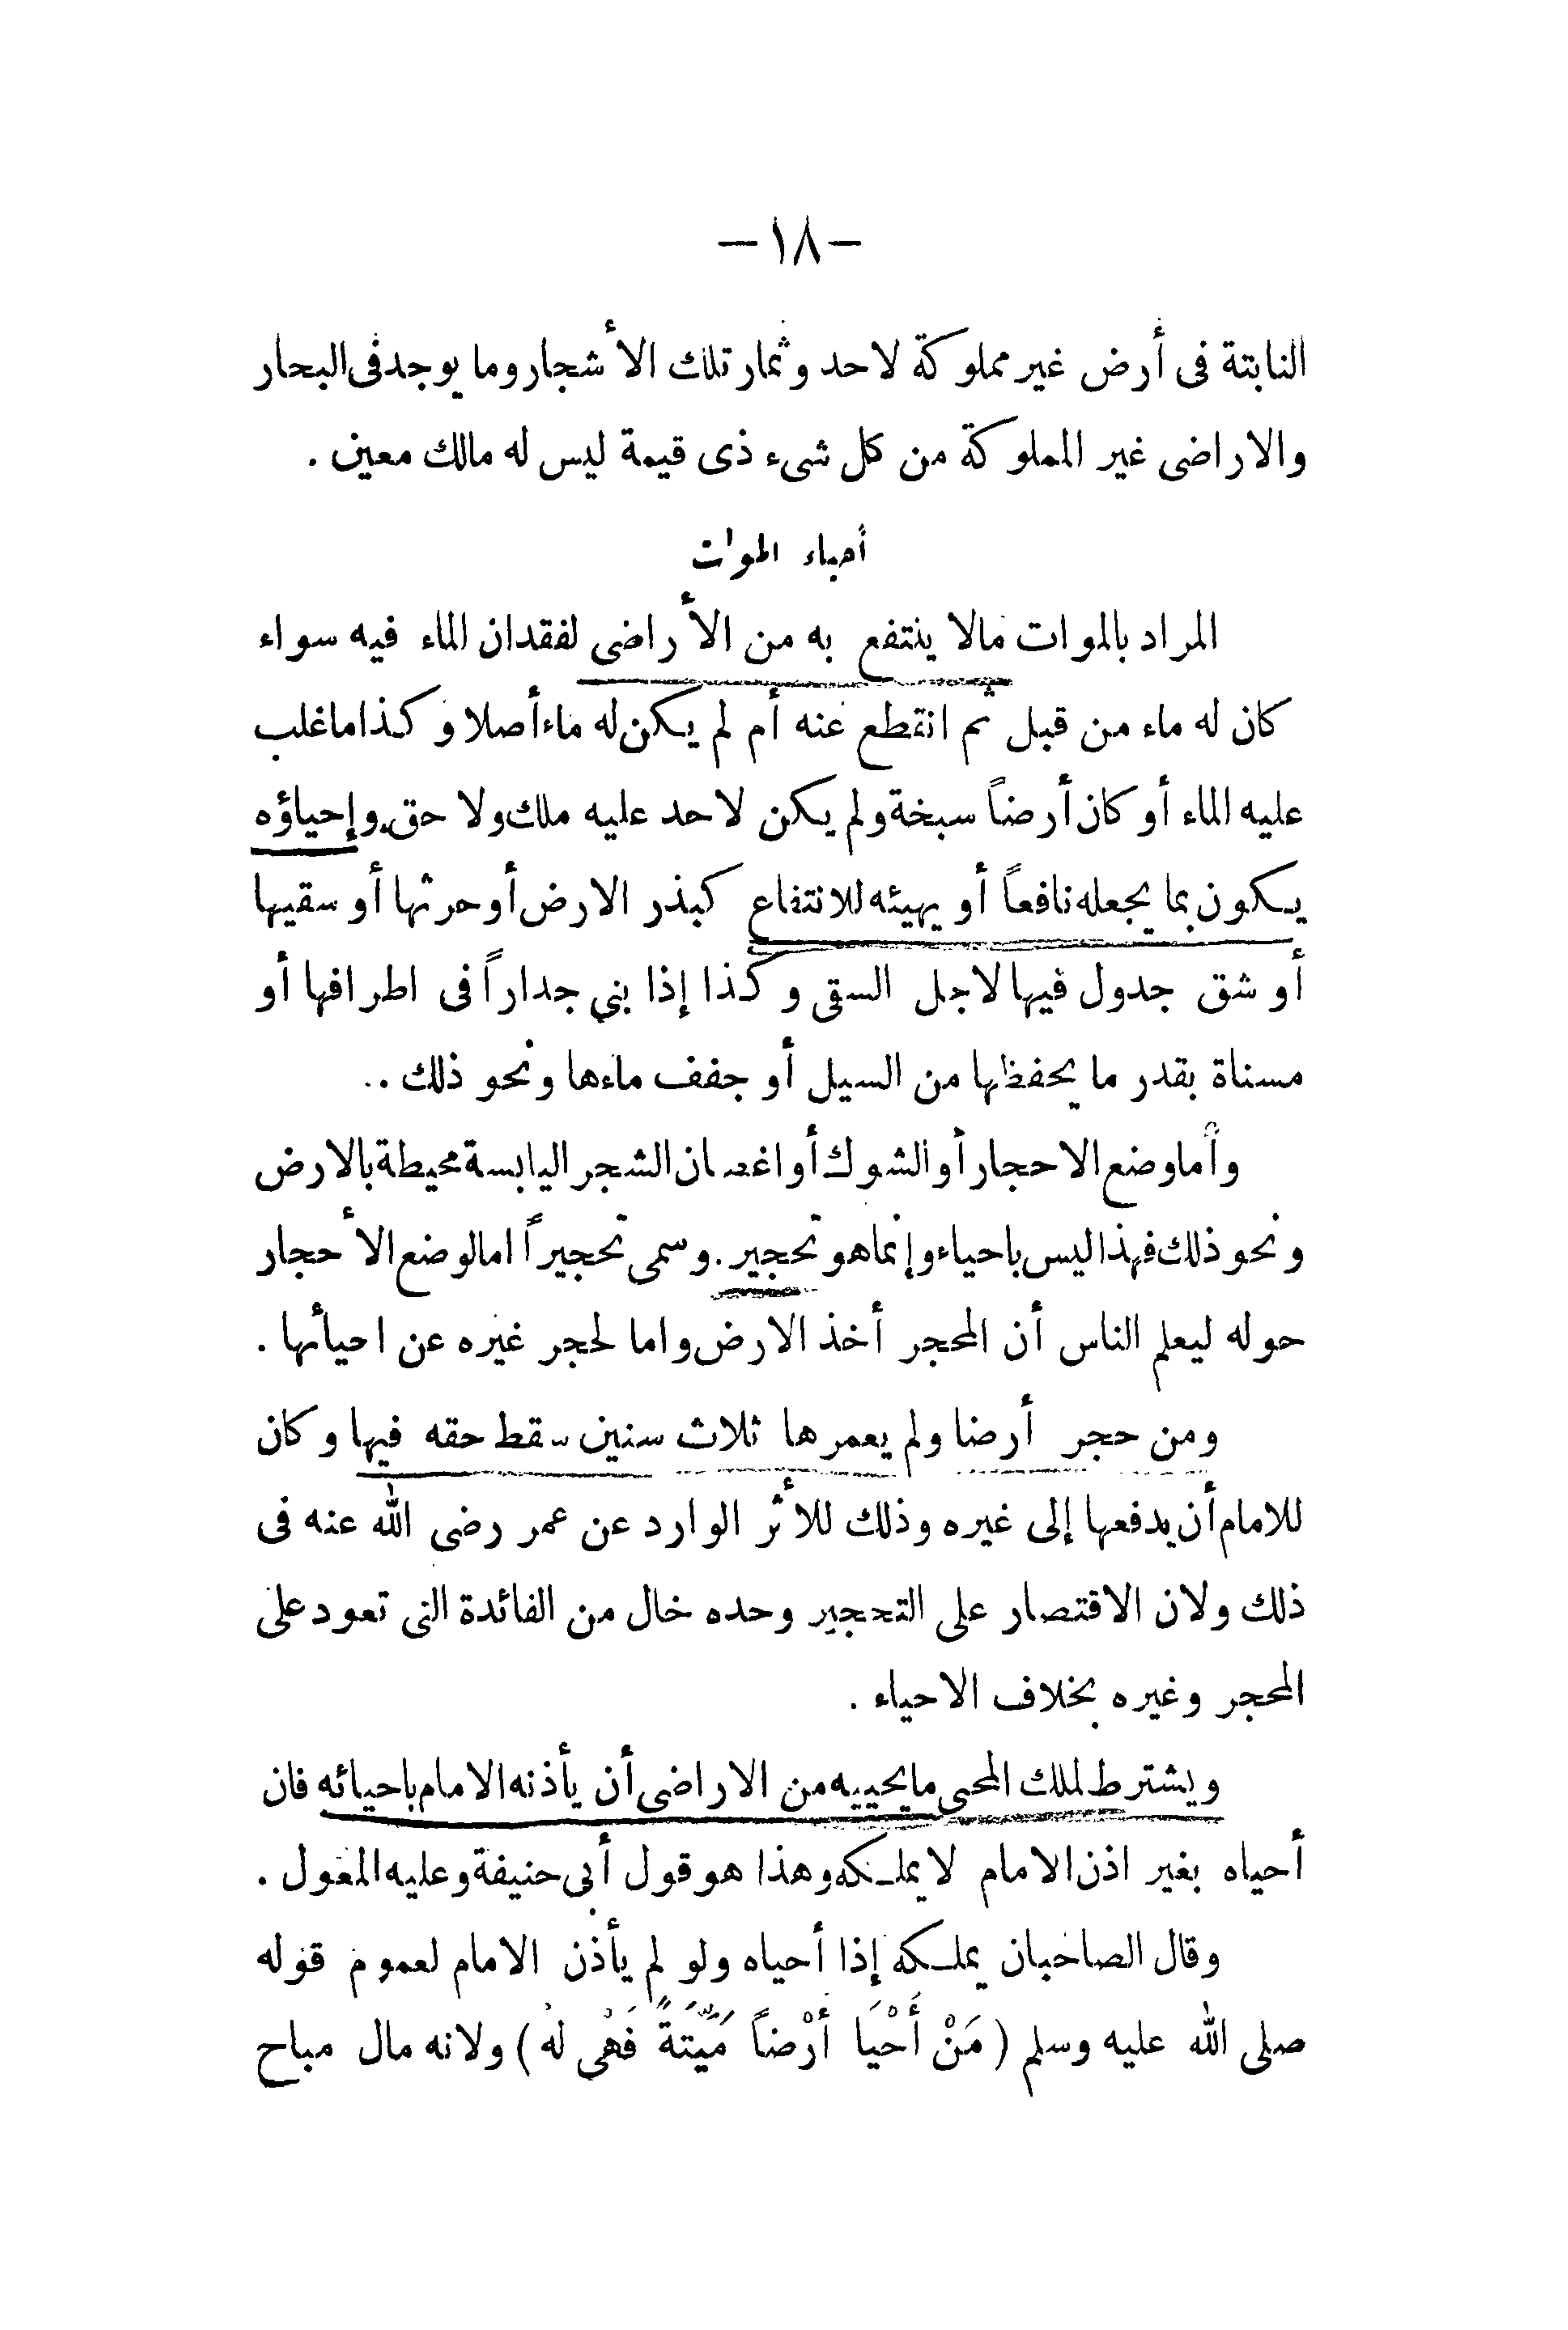 — ١٨ —
النابتة فى أرض غير مملوكة لاحد وثمار تلك الأشجار وما يوجد فى البحار
والاراضى غير المملوكة من كل شىء ذى قيمة ليس له مالك معين .
أحياء الموات
المراد بالموات مالا ينتفع به من الأراضى لفقدان الماء فيه سواء
كان له ماء من قبل ثم انقطع عنه أم لم يكن له ماء أصلا وكذا ما غلب
عليه الماء أو كان أرضاً سبخة ولم يكن لاحد عليه ملك ولا حق. وإحياؤه
يكون بما يجعله نافعاً أو يهيئه للانتفاع كبذر الارض أو حرثها أو سقيها
أو شق جدول فيها لاجل السقى وكذا إذا بنى جداراً فى اطرافها أو
مسناة بقدر ما يحفظها من السيل أو جفف ماءها ونحو ذلك ..
وأما وضع الاحجار أو الشوك أو اغصان الشجر اليابسة محيطة بالارض
ونحو ذلك فهذا ليس باحياء وإنما هو تحجير . وسمى تحجيراً اما لوضع الأحجار
حوله ليعلم الناس أن المحجر أخذ الارض واما لحجر غيره عن احيائها .
ومن حجر أرضا ولم يعمرها ثلاث سنين سقط حقه فيها وكان
للامام أن يدفعها إلى غيره وذلك للأثر الوارد عن عمر رضى الله عنه فى
ذلك ولان الاقتصار على التحجير وحده خال من الفائدة التى تعود على
المحجر وغيره بخلاف الاحياء .
ويشترط لملك المحى ما يحييه من الاراضى أن يأذنه الامام باحيائه فان
أحياه بغير اذن الامام لا يملكه وهذا هو قول أبى حنيفة وعليه المعول .
وقال الصاحبان يملكه إذا أحياه ولو لم يأذن الامام لعموم قوله
صلى الله عليه وسلم ( مَنْ أَحْيَا أرْضاً مَيِّتَةً فَهْى لهُ ) ولانه مال مباح